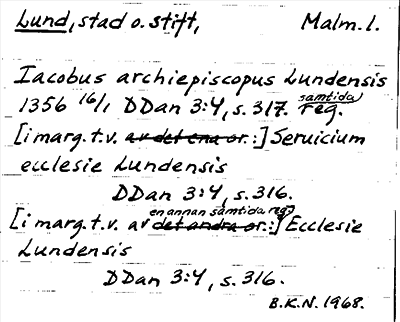 Lund, stad o. stift, Malm. l.
Iacobus archiepiscopus Lundensis
1356 16/1 DDan 3:4, s. 317. samtida reg.
[i marg. t.v. av det ena or.:] Seruicium
ecclesie Lundensis
DDan 3:4, s. 316.
en annan samtida reg?
[i marg. t.v. av det andra or.:] Ecclesie
Lundensis
DDan 3:4, s. 316.
B.K.N. 1968.